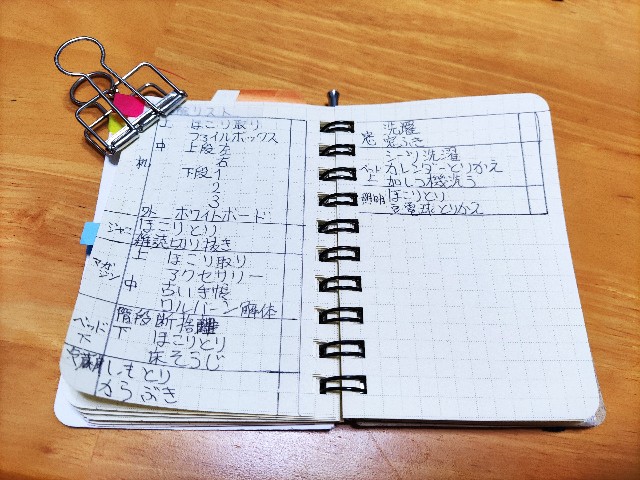 リスト
上 ほこり取り
ファイルボックス
机 中 上段左
右
下段1
2
3
外 ホワイトボード
ジャニ ほこりとり
雑誌切り抜き
マガジン 上 ほこり取り
中 アクセサリー
古い手帳
ワルバーン解体
階段断捨離
ベッド下 下 ほこりとり
床そうじ
冷蔵庫 しもとり
からぶき
洗濯
窓 窓ふき
シーツ洗濯
ベッド上 カレンダーとりかえ
加しつ機洗う
照明 ほこりとり
豆電球とりかえ